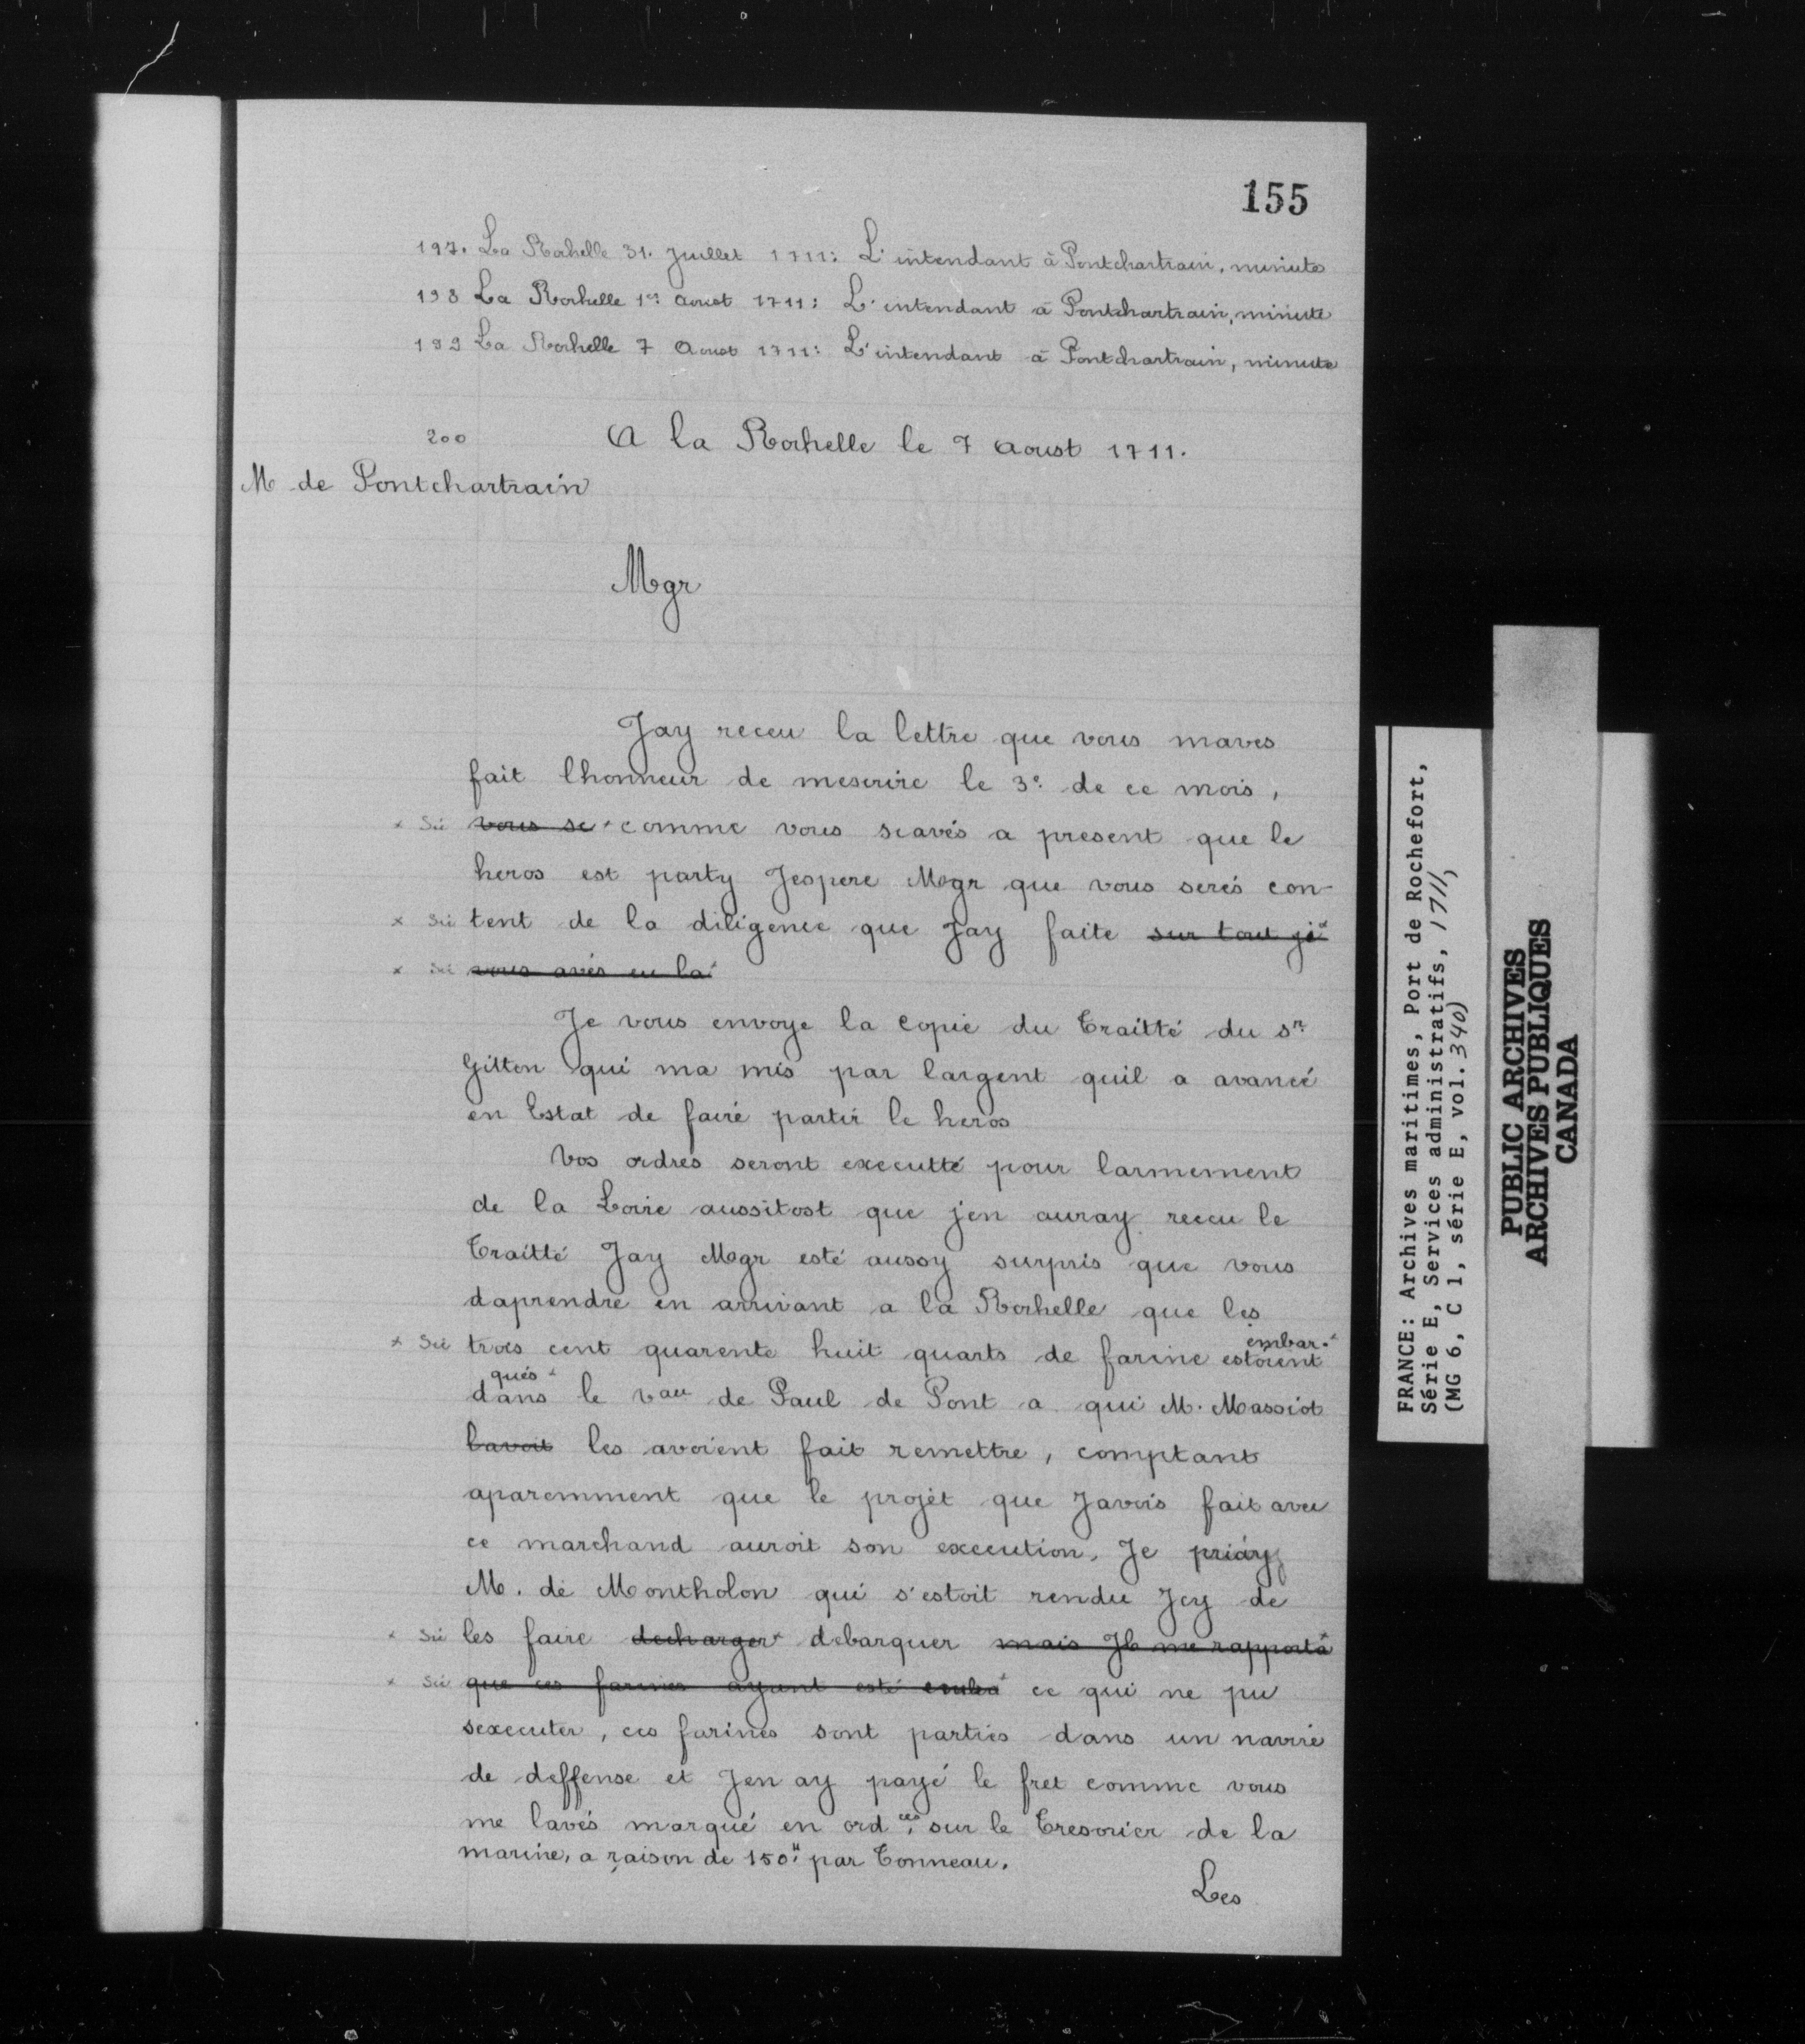 155
197. La Rochelle 31. Juillet 1711: L'intendant à Pontchartrain, minute
198 La Rochelle 1er Aoust 1711: L'intendant à Pontchartrain, minute
199 La Rochelle 7 Aoust 1711: L'intendant à Pontchartrain, minute
200 A la Rochelle le 7 Aoust 1711.
M de Pontchartrain
Mgr
Jay receu la lettre que vous maves
fait lhonneur de mescrire le 3e de ce mois,
x Sic vous sc x comme vous scavés a present que le
heros est party Jespere Mgr que vous serés con-
x Sic tent de la diligence que Jay faite sur tout ji x
x Sic vous avés eu la x
Je vous envoye la copie du Traitté du sr
Gitton qui ma mis par largent quil a avancé
en Estat de faire partir le heros
Vos ordres seront executté pour larmement
de la Loire aussitost que jen auray receu le
Traitté Jay Mgr esté aussy surpris que vous
daprendre en arrivant a la Rochelle que les
x Sic trois cent quarente huit quarts de farine estoient embar- x
qués x dans le vau de Paul de Pont a qui M. Massiot
lavoit les avoient fait remettre, comptant
aparemment que le projet que Javois fait avec
ce marchand auroit son execution. Je priay
M. de Montholon qui s'estoit rendu Jcy de
x Sic les faire decharger x debarquer mais Jl me rapporta x
x Sic que ces farines ayant esté emba x ce qui ne pu
sexecuter, ces farines sont parties dans un navire
de deffense et Jen ay payé le fret comme vous
me lavés marqué en ord.ces sur le Tresorier de la
marine, a raison de 150# par Tonneau.
Les
FRANCE: Archives maritimes, Port de Rochefort,
Série E, Services administratifs, 1711,
(MG 6, C 1, série E, vol. 340)
PUBLIC ARCHIVES
ARCHIVES PUBLIQUES
CANADA